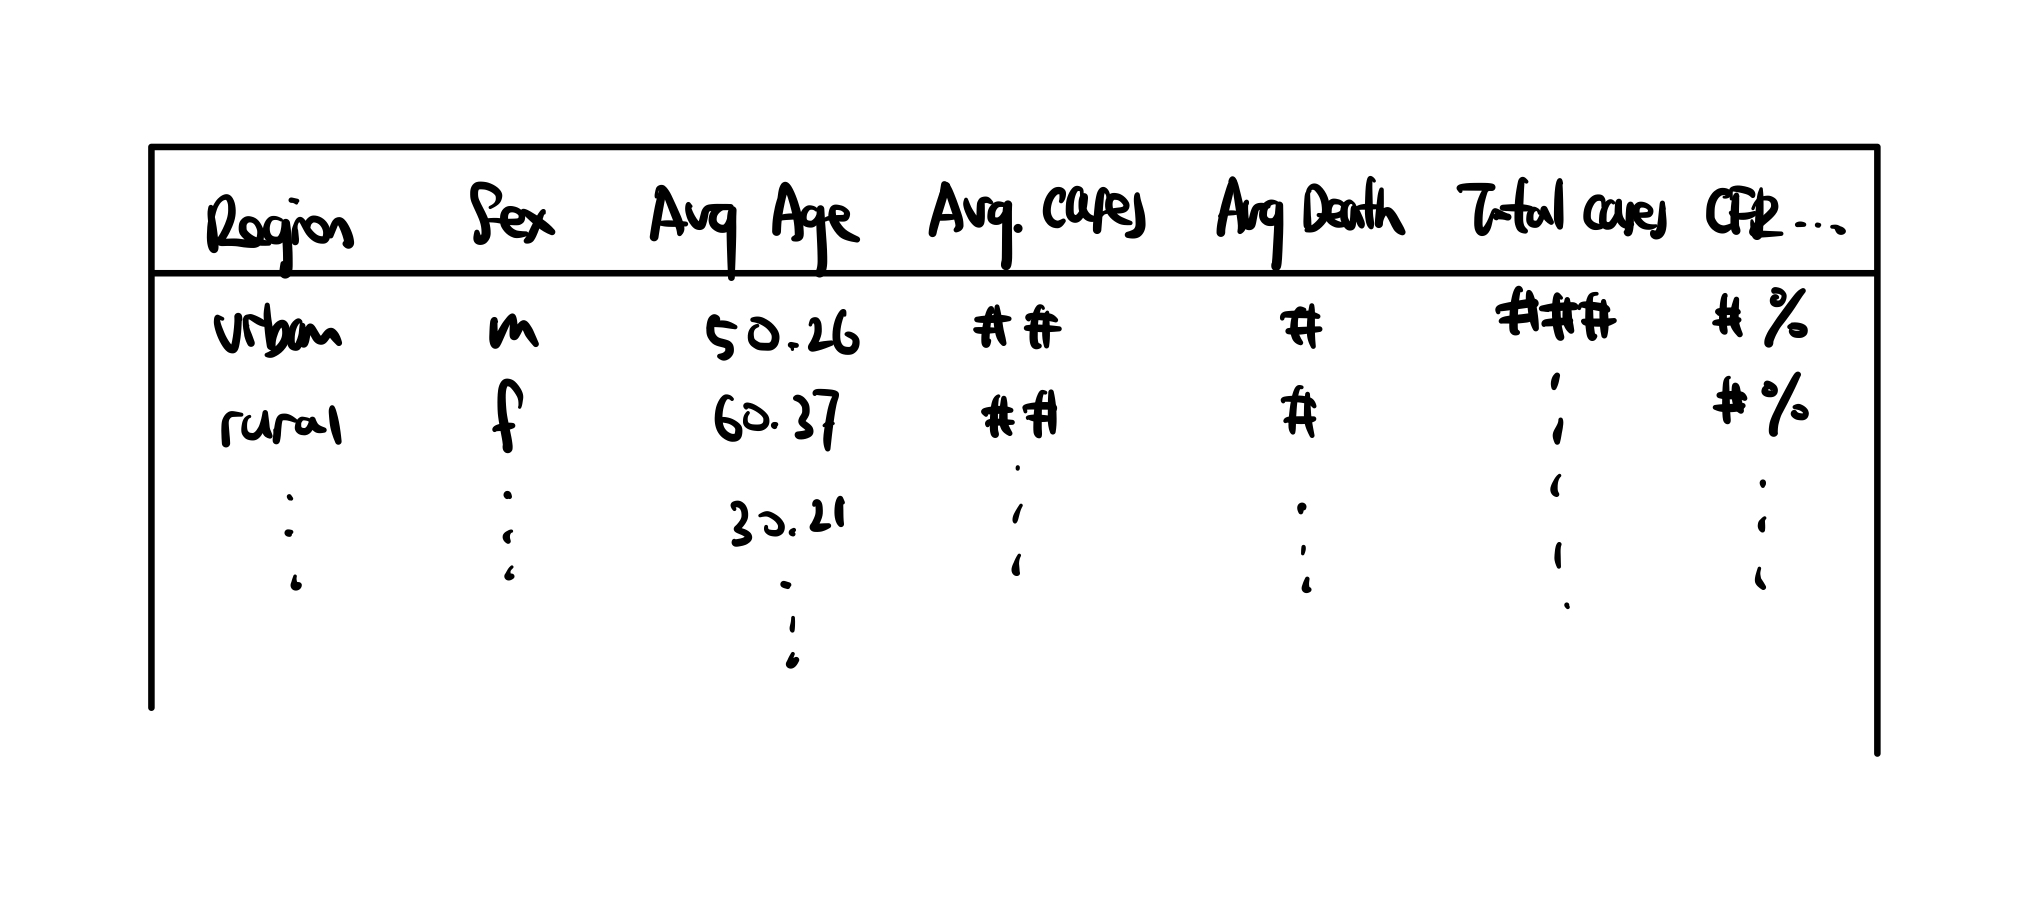 Region Sex Avg Age Avg. cases Avg Death Total cases CFR....
urban m 50.26 ## # ### #%
rural f 60.37 ## # #%
30.21